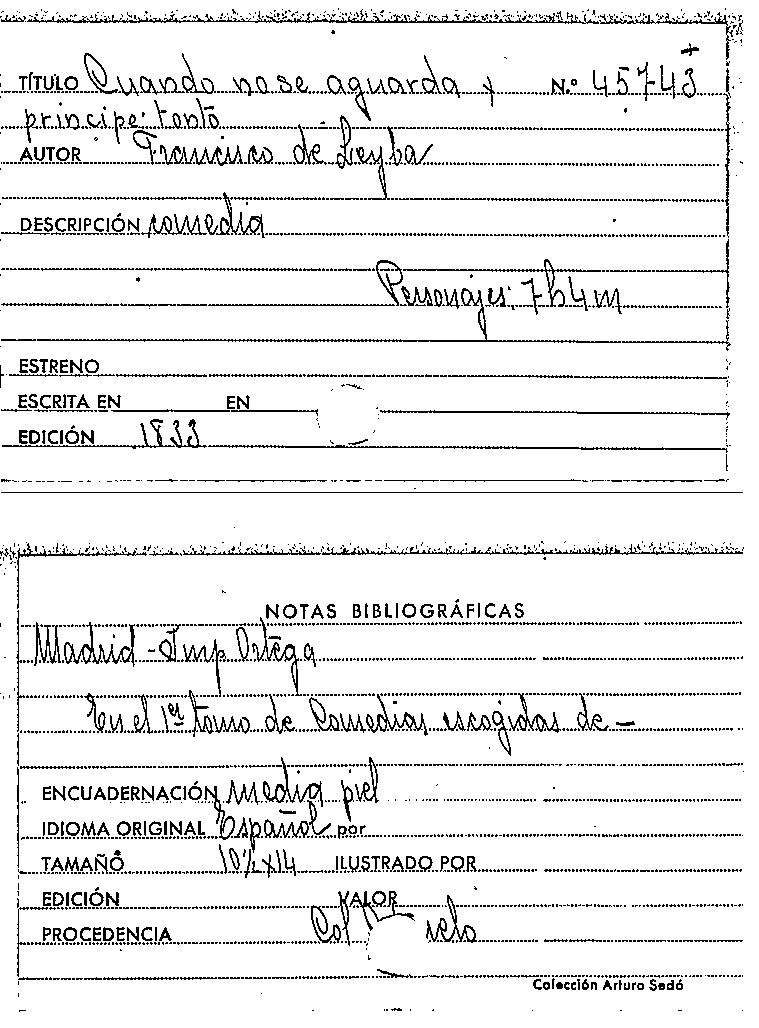 +
TÍTULO Cuando no se aguarda y N.º 45743
príncipe: tonto
AUTOR Francisco de Leyba
DESCRIPCIÓN comedia
Personajes: 7h4m
ESTRENO
ESCRITA EN EN
EDICIÓN 1833
NOTAS BIBLIOGRÁFICAS
Madrid - Imp Ortega
En el 1er tomo de Comedias escogidas de —
ENCUADERNACIÓN media piel
IDIOMA ORIGINAL Español por
TAMAÑO 10½ x 14 ILUSTRADO POR
EDICIÓN VALOR
PROCEDENCIA Col
Colección Arturo Sedó